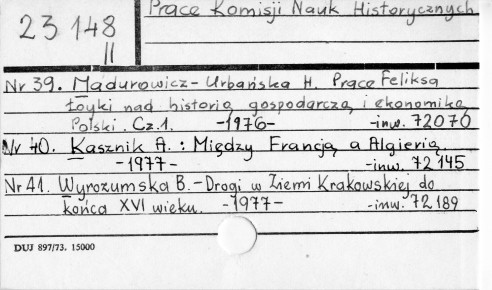 23 148
II
Prace Komisji Nauk Historycznych
Nr 39. Madurowicz-Urbańska H. Prace Feliksa
Łoyki nad historią gospodarczą i ekonomiką
Polski. Cz.1. -1976- -inw. 72070
Nr 40. Kasznik A.: Między Francją a Algierią.
-1977- -inw. 72145
Nr 41. Wyrozumska B. - Drogi w Ziemi Krakowskiej do
końca XVI wieku. -1977- -inw. 72189
DUJ 897/73. 15000